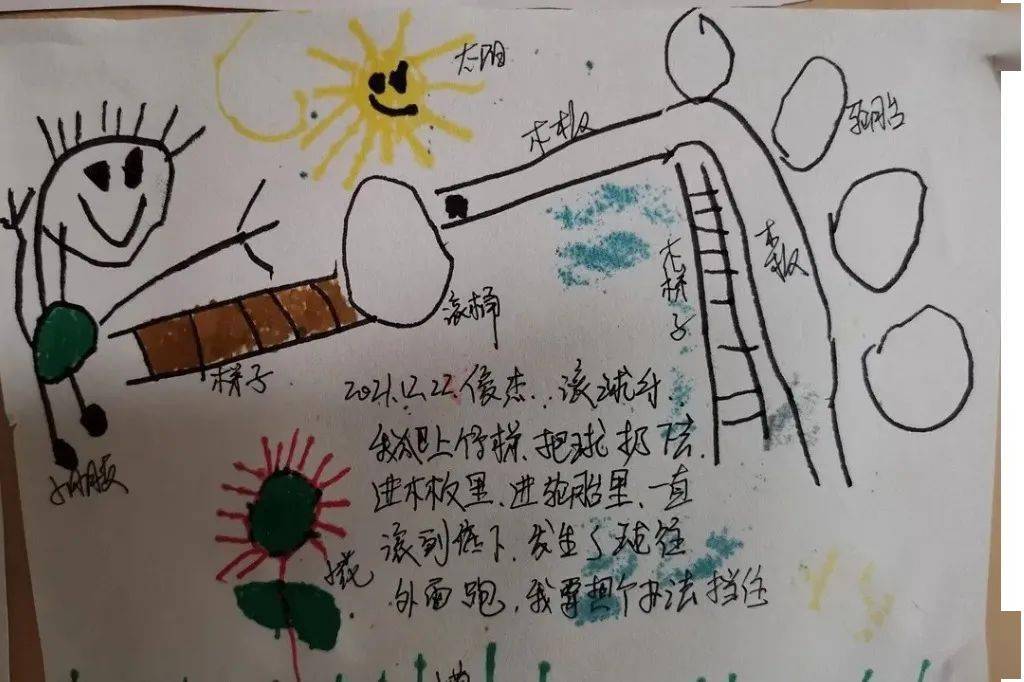 太阳
木板
轮胎
木板
木梯子
滚桶
梯子
2021.12.22.俊杰..滚球台.
我爬上竹梯.把球扔
进木板里、进轮胎里、一直
滚到底下.发生了球往
外面跑,我要想个办法挡住
小朋友
花